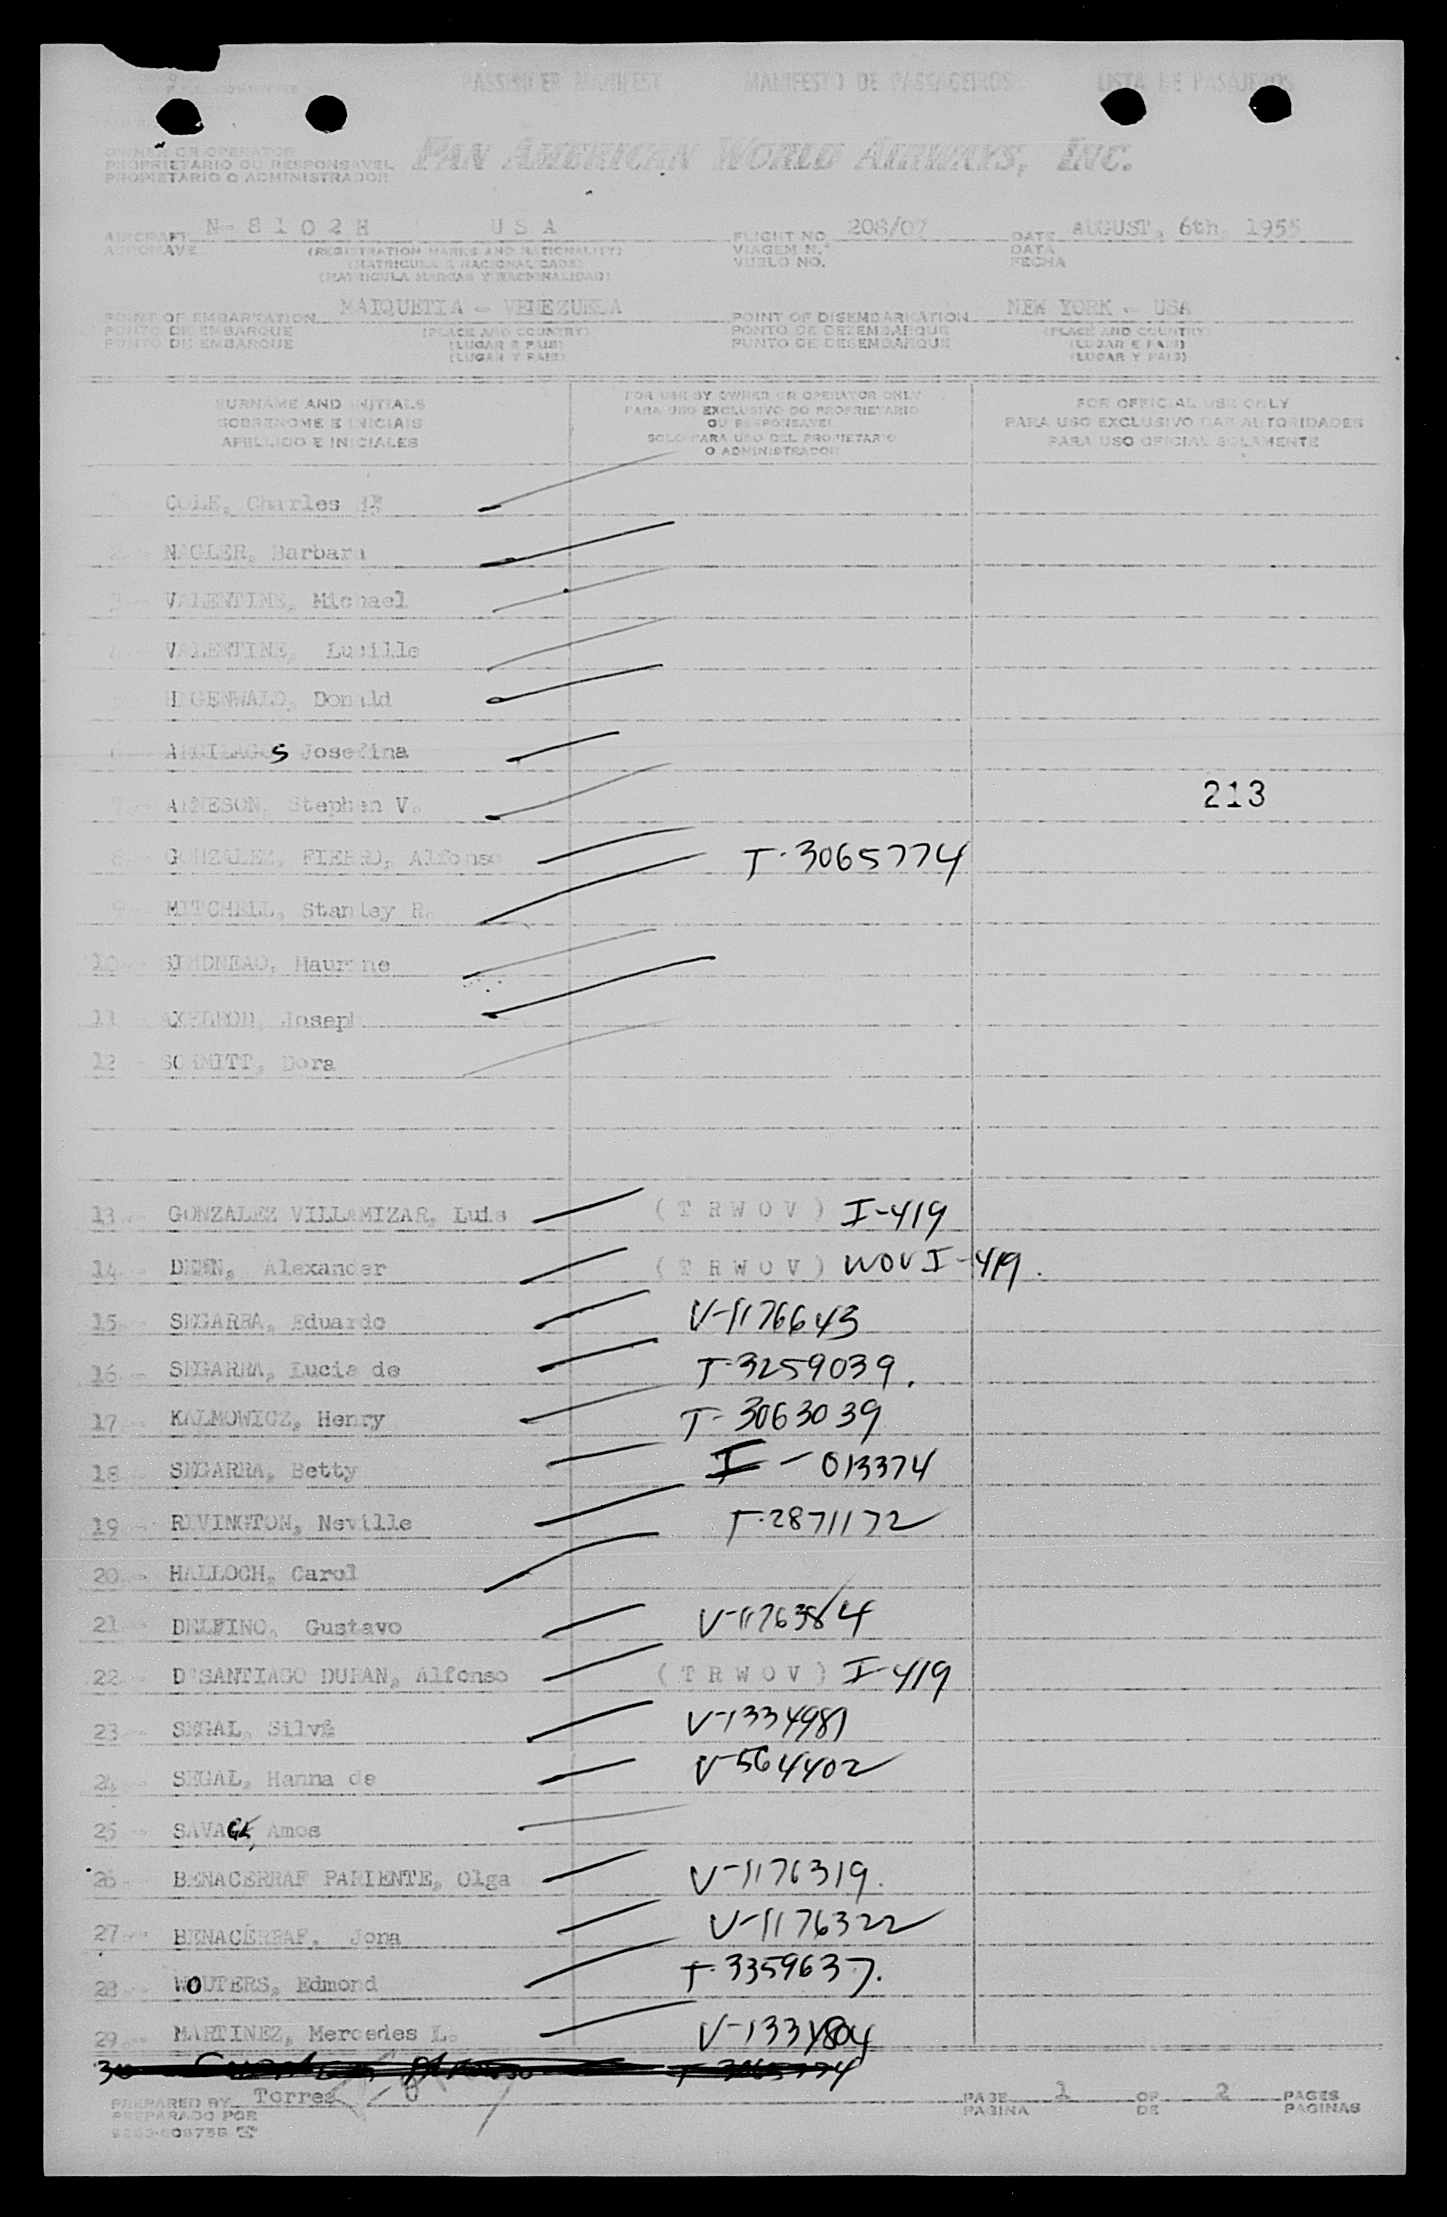 PASSENGER MANIFEST MANIFESTO DE PASSAGEIROS LISTA DE PASAJEROS
OWNER OR OPERATOR
PROPRIETARIO OU RESPONSAVEL
PROPIETARIO O ADMINISTRADOR
PAN AMERICAN WORLD AIRWAYS, INC.
AIRCRAFT N-8102H USA FLIGHT NO. 208/07 DATE AUGUST, 6th, 1955
AERONAVE (REGISTRATION MARKS AND NATIONALITY) VIAGEM N.º DATA
(MATRICULA E NACIONALIDADE) VUELO NO. FECHA
(MATRICULA MARCAS Y NACIONALIDAD)
POINT OF EMBARKATION MAIQUETIA - VENEZUELA POINT OF DISEMBARKATION NEW YORK - USA
PONTO DE EMBARQUE (PLACE AND COUNTRY) PONTO DE DESEMBARQUE (PLACE AND COUNTRY)
PUNTO DE EMBARQUE (LUGAR E PAIS) PUNTO DE DESEMBARQUE (LUGAR E PAIS)
(LUGAR Y PAIS) (LUGAR Y PAIS)
SURNAME AND INITIALS FOR USE BY OWNER OR OPERATOR ONLY FOR OFFICIAL USE ONLY
SOBRENOME E INICIAIS PARA USO EXCLUSIVO DO PROPRIETARIO OU RESPONSAVEL PARA USO EXCLUSIVO DAS AUTORIDADES
APELLIDO E INICIALES SOLO PARA USO DEL PROPIETARIO O ADMINISTRADOR PARA USO OFICIAL SOLAMENTE
COLE, Charles
2 - NAGLER, Barbara
3 - VALENTINE, Michael
4 - VALENTINE, Lucille
HAGENWALD, Donald
6 - ARGILAGOS Josefina
7 - ARNESON, Stephen V.
213
8 - GONZALEZ, FIERRO, Alfonso T-3065774
9 - MITCHELL, Stanley R.
10 - SIMONEAU, Maurine
11 AXELROD, Joseph
12 - SCHMITT, Dora
13 - GONZALEZ VILLAMIZAR, Luis (TRWOV) I-419
14 - DEEN, Alexander (TRWOV) WOV I-419.
15 - SEGARRA, Eduardo V-1176643
16 - SEGARRA, Lucia de T-3259039.
17 - KALMOWICZ, Henry T-3063039
18 - SEGARRA, Betty I-013374
19 - RIVINGTON, Neville T-2871172
20 - HALLOCH, Carol
21 - DELFINO, Gustavo V-1176384
22 - D'SANTIAGO DURAN, Alfonso (TRWOV) I-419
23 - SEGAL, Silvi V-1334981
24 - SEGAL, Hanna de V-564402
25 - SAVAGE, Amos
26 - BENACERRAF PARIENTE, Olga V-1176319.
27 - BENACERRAF, Jona V-1176322
28 - WOUTERS, Edmond T-3359637.
29 - MARTINEZ, Mercedes L. V-1334804
30
PREPARED BY Torres PAGE 1 OF 2 PAGES
PREPARADO POR PAGINA DE PAGINAS